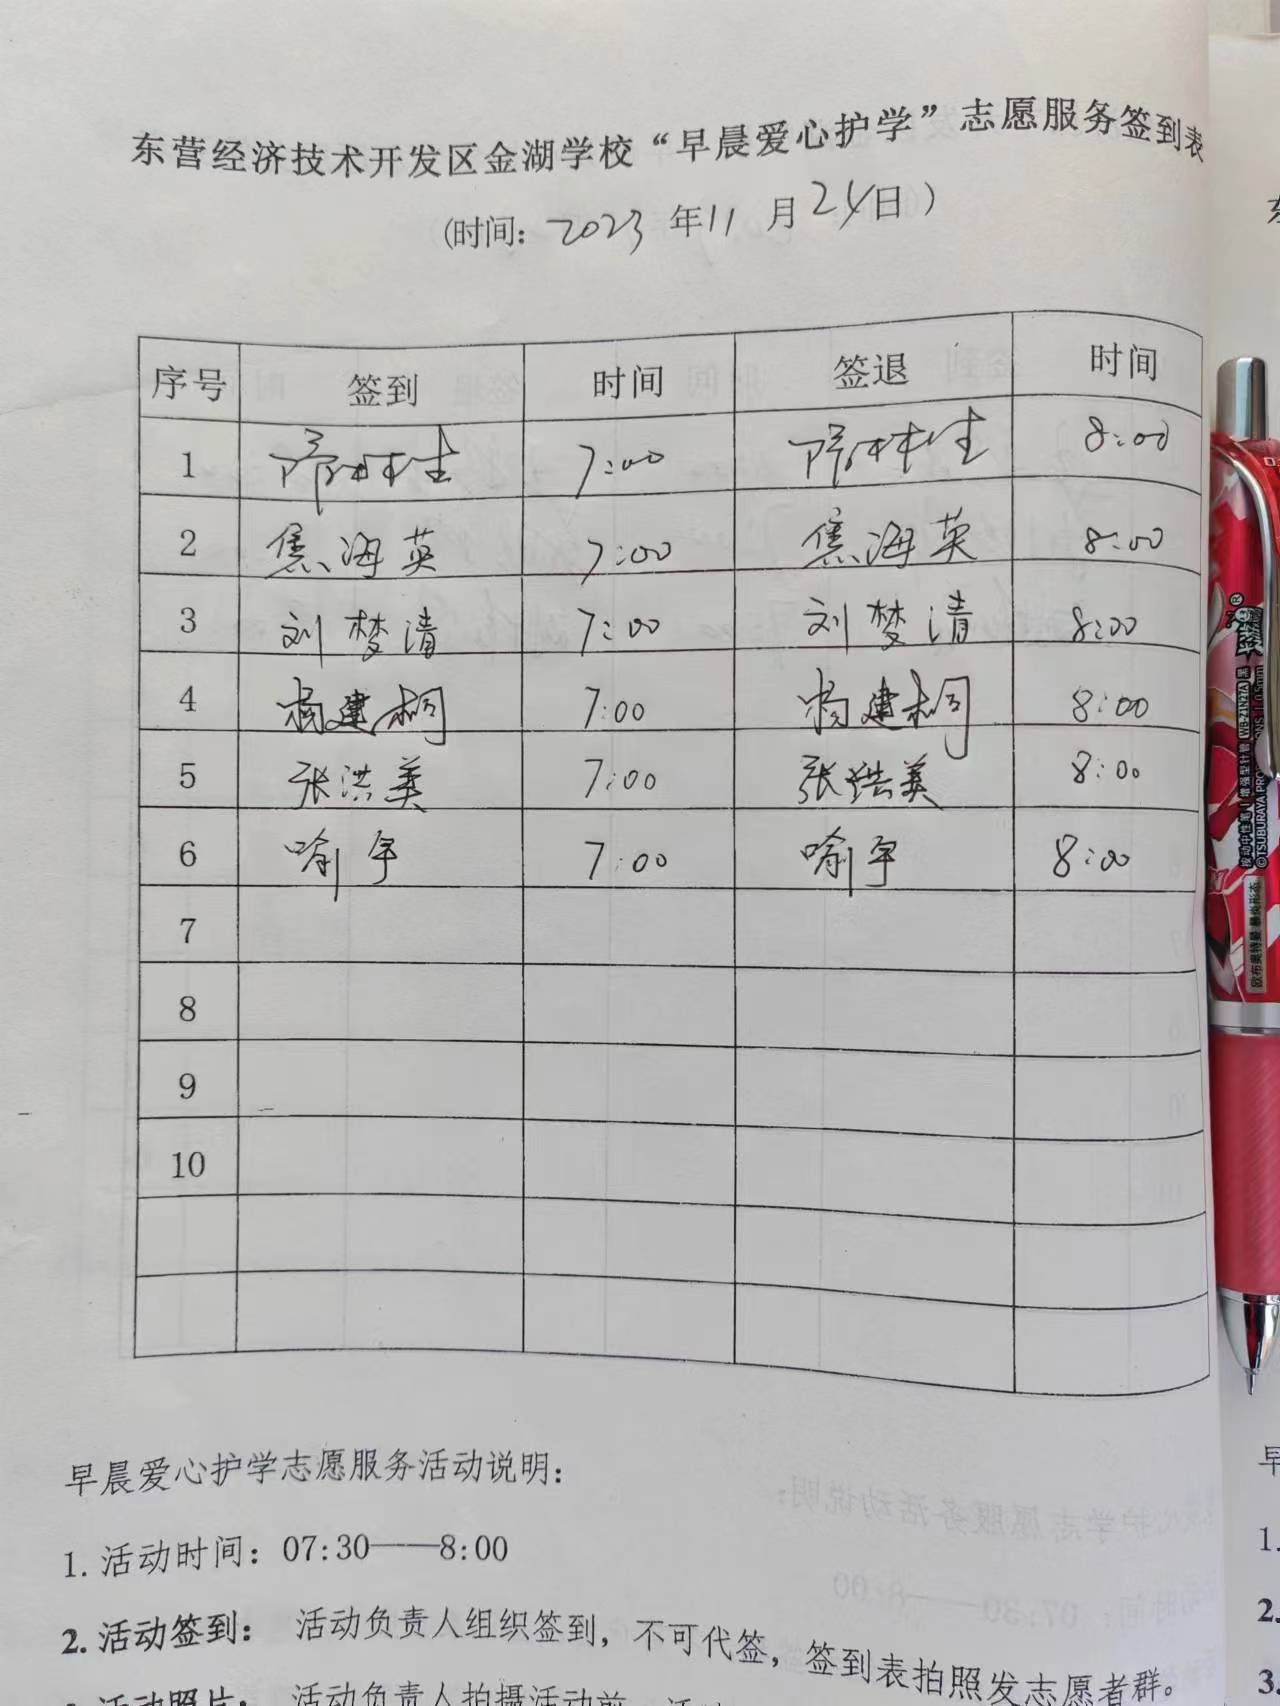 东营经济技术开发区金湖学校“早晨爱心护学”志愿服务签到表
(时间: 2023 年 11 月 24 日)
序号 签到 时间 签退 时间
1 7:00 8:00
2 焦海英 7:00 焦海英 8:00
3 刘梦清 7:00 刘梦清 8:00
4 杨建桐 7:00 杨建桐 8:00
5 张洪美 7:00 张洪美 8:00
6 喻宇 7:00 喻宇 8:00
7
8
9
10
早晨爱心护学志愿服务活动说明:
1. 活动时间: 07:30——8:00
2. 活动签到: 活动负责人组织签到, 不可代签, 签到表拍照发志愿者群。
活动照片: 活动负责人拍摄活动前